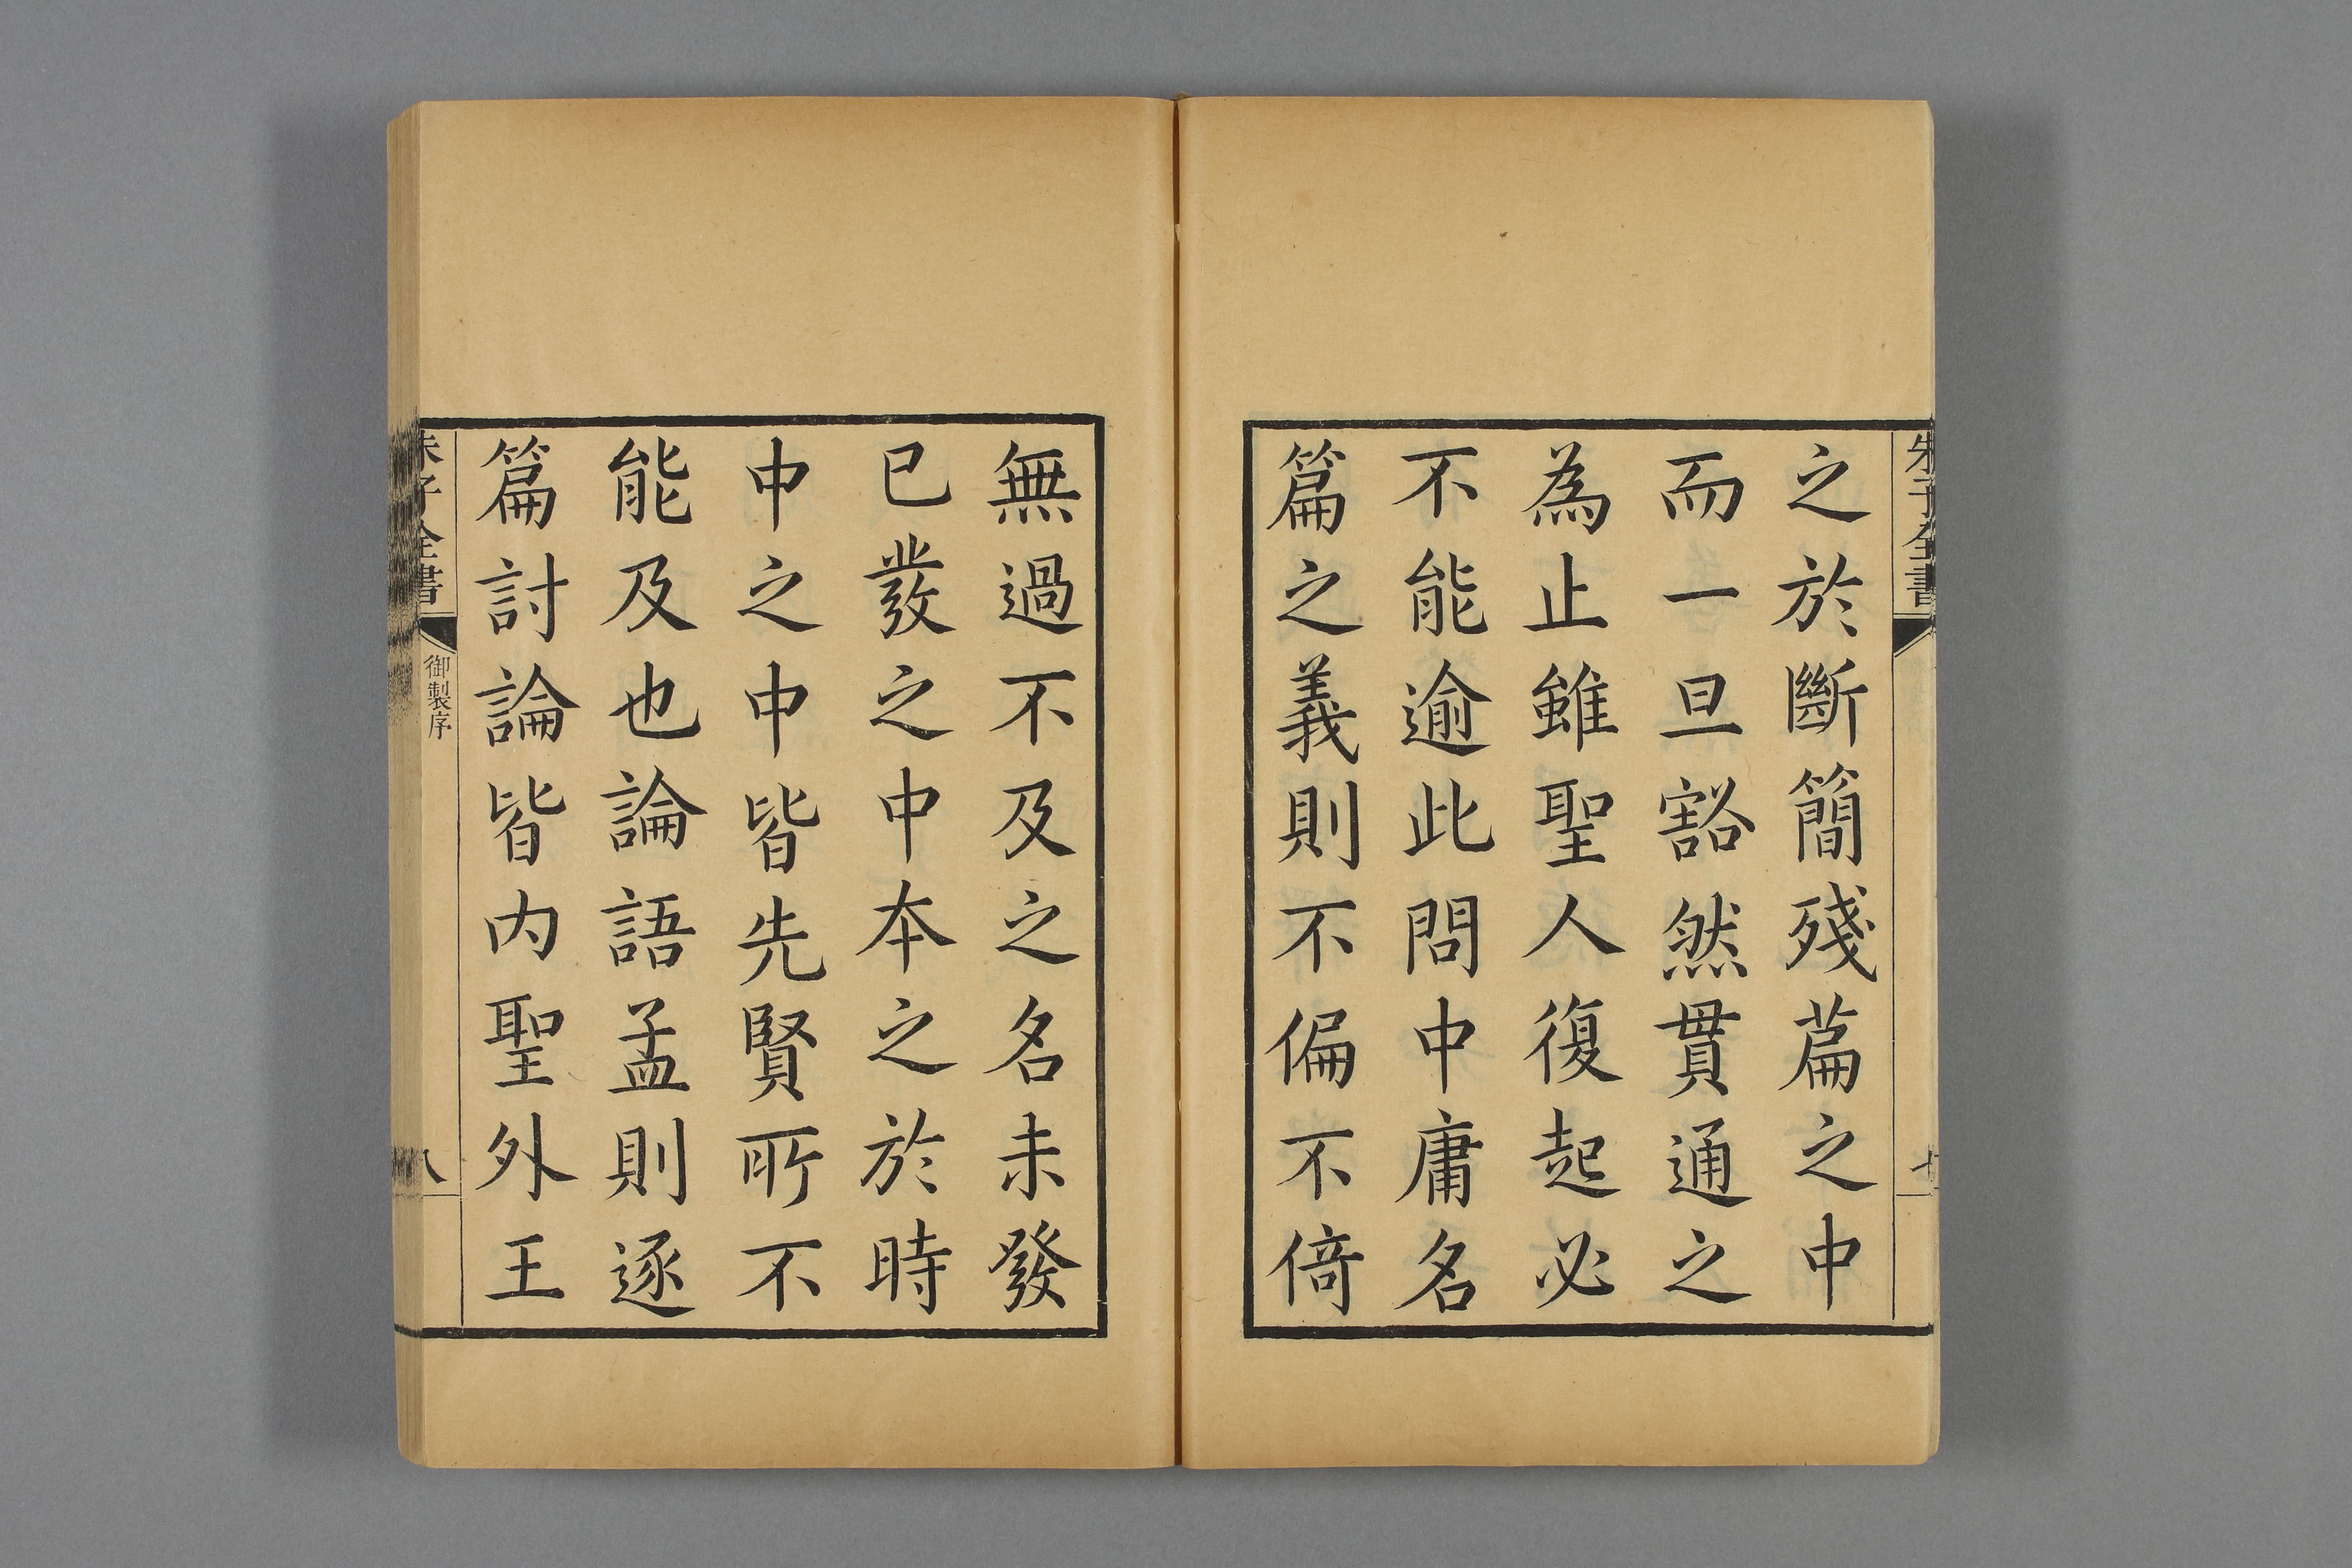 朱子全書
之於斷簡殘萹之中
而一旦豁然貫通之
為止雖聖人復起必
不能逾此問中庸名
篇之義則不偏不倚
無過不及之名未發
已發之中本之於時
中之中皆先賢所不
能及也論語孟則逐
篇討論皆內聖外王
朱子全書
御製序
八